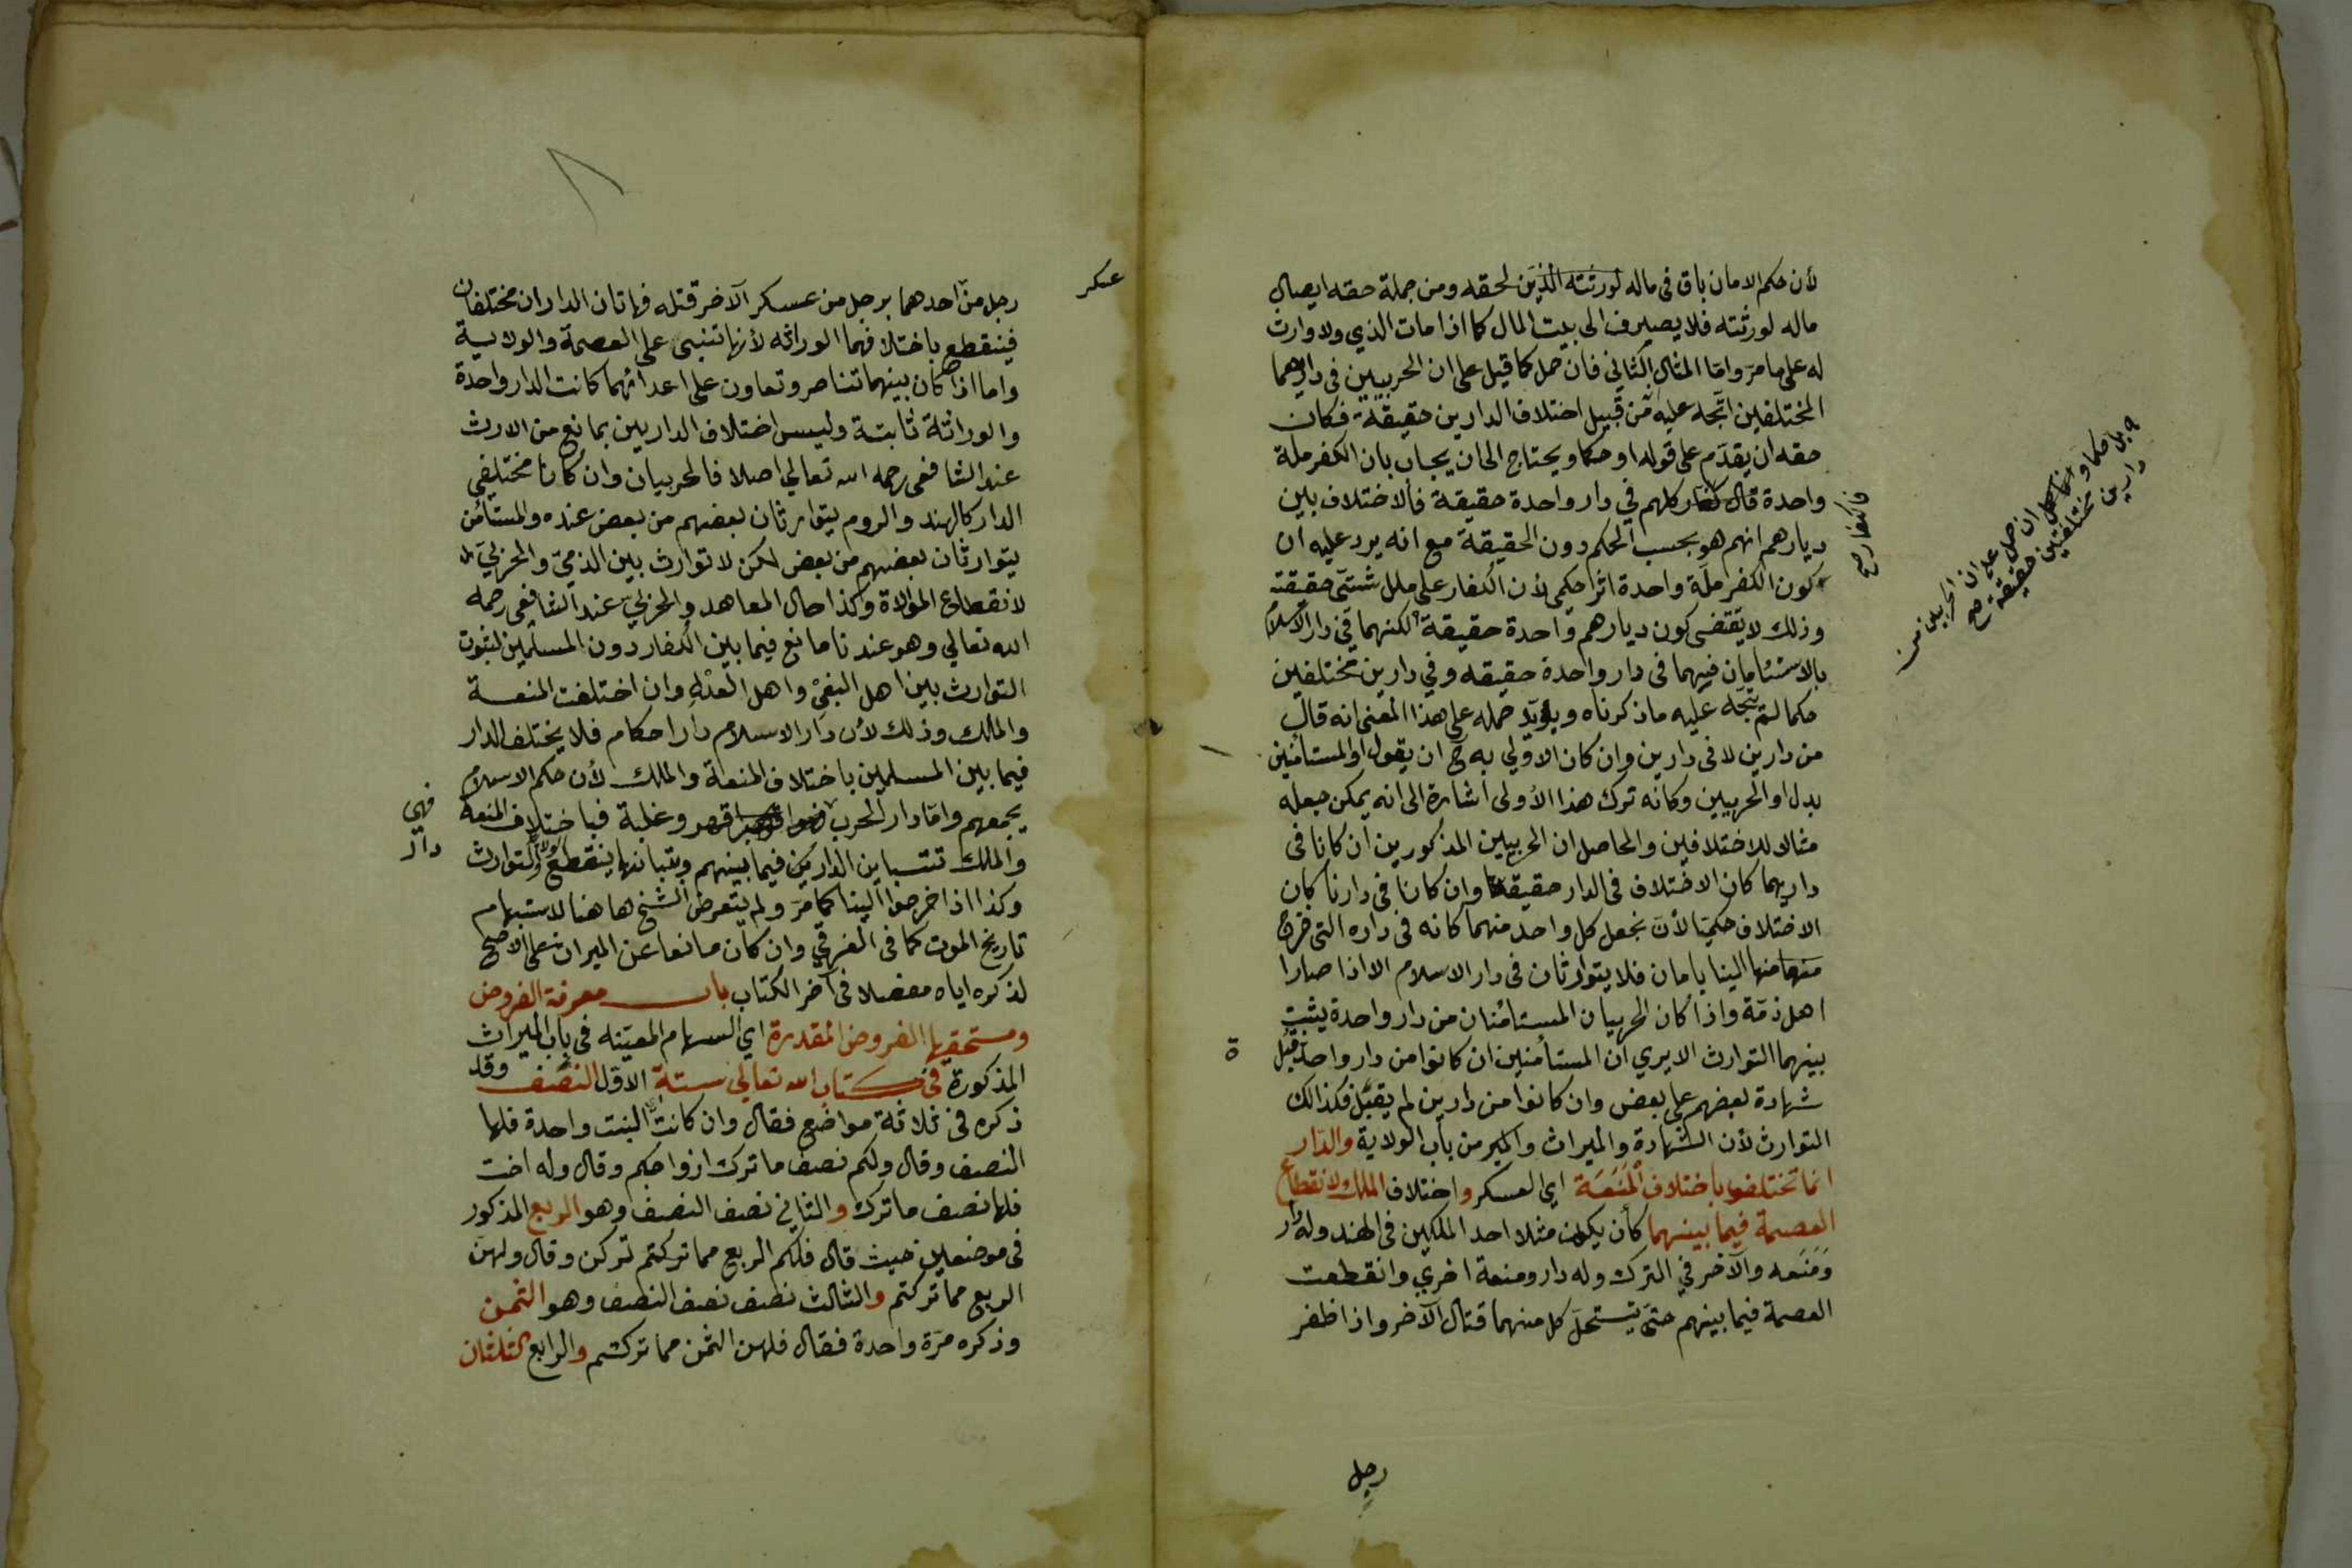 لأن حكم الامان باق في ماله لورثته الذين لحقه ومن جملة حقه ايصال
ماله لورثته فلا يصيرف الى بيت المال كما اذا مات الذي ولا وارث
له على ما مر واما المثال الثاني فان حمل كما قيل على ان الحربيين في داريهما
المختلفين اتجه عليه من قبيل اختلاف الدارين حقيقة فكان
حقه ان يقدم على قوله او حكما ويحتاج الى ان يجاب بان الكفر ملة
واحدة قال كفار كلهم في دار واحدة حقيقة فالاختلاف بين
ديارهم انهم هو بحسب الحكم دون الحقيقة مع انه يرد عليه ان
كون الكفر ملة واحدة اثر حكمي لأن الكفار على ملل شتى حقيقة
وذلك لا يقتضى كون ديارهم واحدة حقيقة لكنهما في دار الاسلام
بالاستئمان فيهما في دار واحدة حقيقه وفي دارين مختلفين
حكما لم يتجه عليه ما ذكرناه ويؤيد حمله على هذا المعنى انه قال
من دارين لا في دارين وان كان الاولي به ح ان يقول او المستأمنين
بدل او الحربيين وكانه ترك هذا الأولى اشارة الى انه يمكن جعله
مثالا للاختلافين والحاصل ان الحربيين المذكورين ان كانا في
داريهما كان الاختلاف في الدار حقيقة وان كانا في دارنا كان
الاختلاف حكميا لأن نجعل كل واحد منهما كانه في داره التي خرج
منها الينا بامان فلا يتوارثان في دار الاسلام الا اذا صارا
اهل ذمة واذا كان الحربيان المستأمنان من دار واحدة يثبت
بينهما التوارث الا يري ان المستأمنين ان كانوا من دار واحد قبل
ة
شهادة بعضهم على بعض وان كانوا من دارين لم يقبل فكذالك
التوارث لأن الشهادة والميراث والمير من باب الولاية والدار
انما تختلف باختلاف المنعة اي العسكر واختلاف الملك ولانقطاع
العصمة فيما بينهما كأن يكون مثلا احد الملكين في الهند وله دار
ومنعه والآخر في الترك وله دار ومنعة اخري وانقطعت
العصمة فيما بينهم حتى يستحل كل منهما قتال الآخر واذا ظفر
رجل
فالكفار صح
بل حكما وانما كل ان حمل على ان الحربيين من
دارين مختلفين حقيقة صح
عسكر
رجل من احدهما برجل من عسكر الآخر قتله فهاتان الداران مختلفان
فينقطع باختلافهما الوراثه لأنها تنبنى على العصمة والولاية
واما اذا كان بينهما تناصر وتعاون على اعدائهما كانت الدار واحدة
والوراثة ثابتة وليس اختلاف الدارين بمانع من الارث
عند الشافعي رحمه الله تعالي اصلا فالحربيان وان كانا مختلفي
الدار كالهند والروم يتوارثان بعضهم من بعض عنده والمستأمن
يتوارثان بعضهم من بعض لكن لا توارث بين الذمي والحربي
لانقطاع الموالاة وكذا حال المعاهد والحربي عند الشافعي رحمه
الله تعالي وهو عندنا مانع فيما بين الكفار دون المسلمين لثبوت
التوارث بين اهل البغي واهل العدل وان اختلفت المنعة
والملك وذلك لأن دار الاسلام دار احكام فلا يختلف الدار
فيما بين المسلمين باختلاف المنعة والملك لأن حكم الاسلام
يجمعهم واما دار الحرب قهر وغلبة فباختلاف المنعة
فهي
دار
والملك تتباين الدارين فيما بينهم وبتباينها ينقطع التوارث
وكذا اذا خرجوا الينا كما مر ولم يتعرض الشيخ هاهنا لاستبهام
تاريخ الموت كما في الغرقي وان كان مانعا عن الميراث على الاصح
لذكره اياه مفصلا في آخر الكتاب باب معرفة الفروض
ومستحقيها الفروض المقدرة اي السهام المعينه في باب الميراث
المذكورة في كتاب الله تعالي ستة الاول النصف وقد
ذكره في ثلاثة مواضع فقال وان كانت البنت واحدة فلها
النصف وقال ولكم نصف ما ترك ازواجكم وقال وله اخت
فلها نصف ما ترك والثاني نصف النصف وهو الربع المذكور
في موضعين حيث قال فلكم الربع مما تركتم تركن وقال ولهن
الربع مما تركتم والثالث نصف نصف النصف وهو الثمن
وذكره مرة واحدة فقال فلهن الثمن مما تركتم والرابع الثلثان